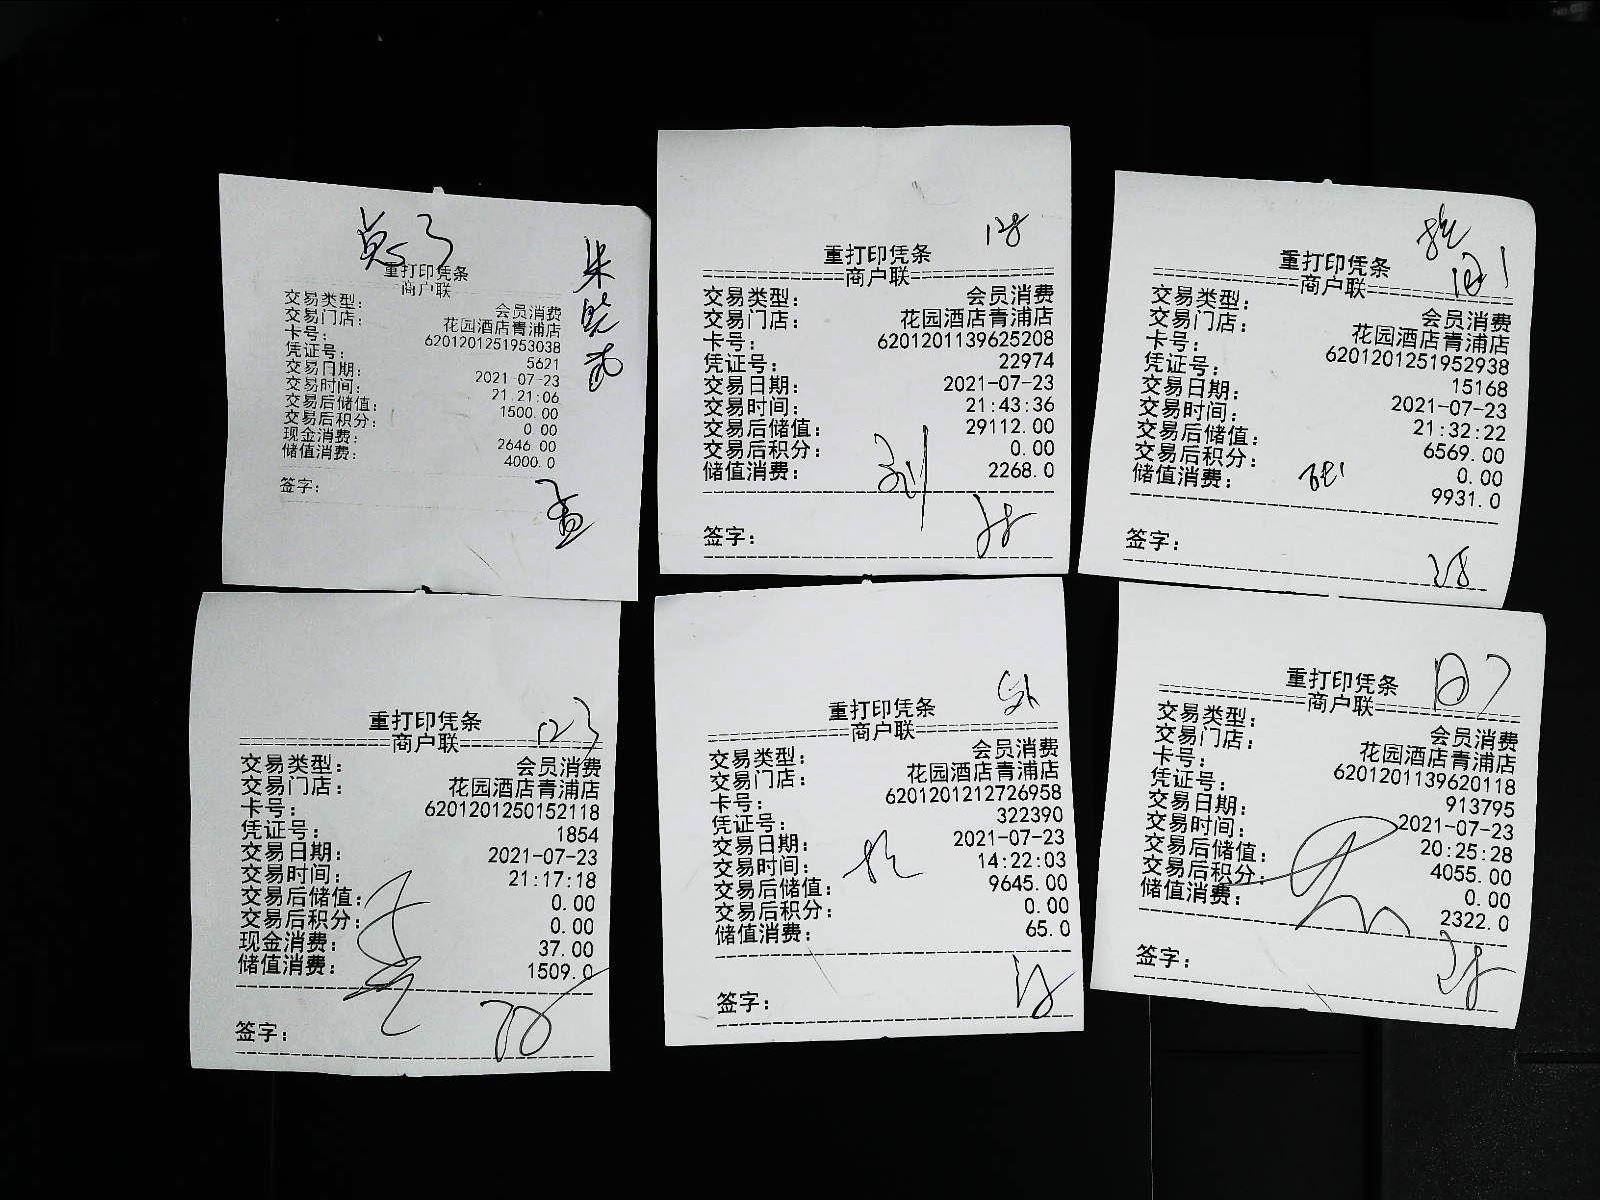 重打印凭条
商户联
交易类型: 会员消费
交易门店: 花园酒店青浦店
卡号: 6201201251953038
凭证号: 5621
交易日期: 2021-07-23
交易时间: 21:21:06
交易后储值: 1500.00
交易后积分: 0.00
现金消费: 2646.00
储值消费: 4000.0
签字:
128
重打印凭条
商户联
交易类型: 会员消费
交易门店: 花园酒店青浦店
卡号: 6201201139625208
凭证号: 22974
交易日期: 2021-07-23
交易时间: 21:43:36
交易后储值: 29112.00
交易后积分: 0.00
储值消费: 2268.0
签字:
重打印凭条
商户联
交易类型: 会员消费
交易门店: 花园酒店青浦店
卡号: 6201201251952938
凭证号: 15168
交易日期: 2021-07-23
交易时间: 21:32:22
交易后储值: 6569.00
交易后积分: 0.00
储值消费: 9931.0
签字:
123
重打印凭条
商户联
交易类型: 会员消费
交易门店: 花园酒店青浦店
卡号: 6201201250152118
凭证号: 1854
交易日期: 2021-07-23
交易时间: 21:17:18
交易后储值: 0.00
交易后积分: 0.00
现金消费: 37.00
储值消费: 1509.0
签字:
重打印凭条
商户联
交易类型: 会员消费
交易门店: 花园酒店青浦店
卡号: 6201201212726958
凭证号: 322390
交易日期: 2021-07-23
交易时间: 14:22:03
交易后储值: 9645.00
交易后积分: 0.00
储值消费: 65.0
签字:
重打印凭条
商户联
交易类型: 会员消费
交易门店: 花园酒店青浦店
卡号: 6201201139620118
凭证号: 913795
交易日期: 2021-07-23
交易时间: 20:25:28
交易后储值: 4055.00
交易后积分: 0.00
储值消费: 2322.0
签字: